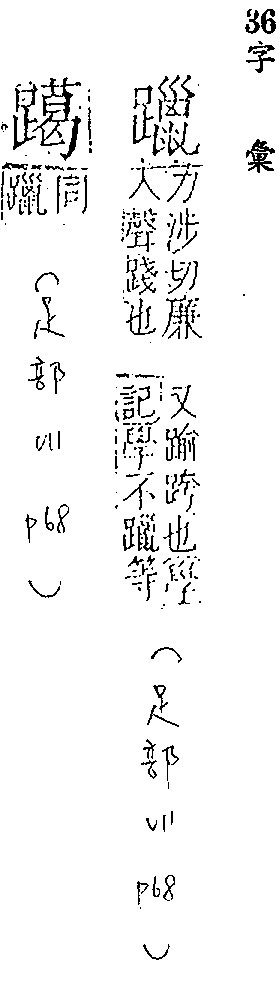 36字彙
躐力涉切廉入聲踐也 又踰跨也學記學不躐等
(足部 p68)
同躐
(足部 p68)